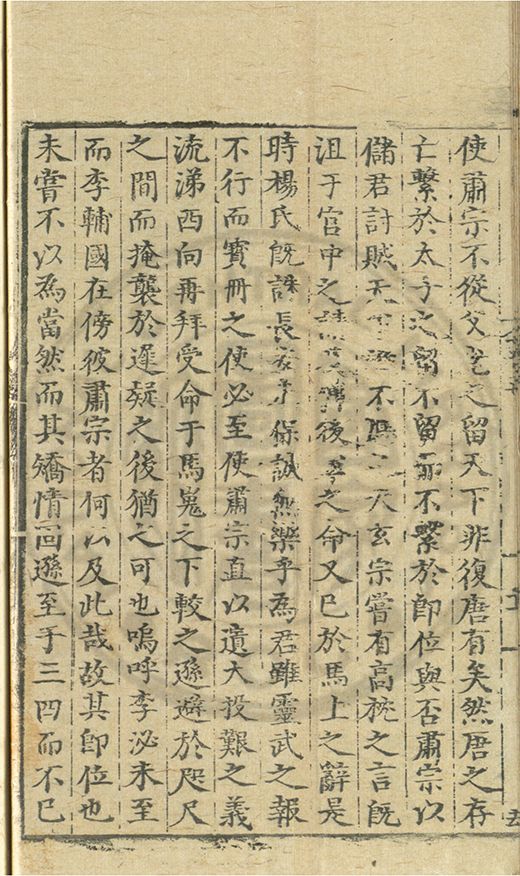 使肅宗不從父老之留天下非復唐有矣然唐之存
亡繫於太子之留不留而不繫於卽位與否肅宗以
儲君討賊天不天玄宗嘗有高枕之言旣
沮于宮中之後之命又已於馬上之辭是
時楊氏旣誅長保誠無樂乎爲君雖靈武之報
不行而寶冊之使必至使肅宗直以遺大投艱之義
流涕西向再拜受命于馬嵬之下較之遜避於咫尺
之間而掩襲於遲疑之後猶之可也嗚呼李泌未至
而李輔國在傍彼肅宗者何以及此哉故其卽位也
未嘗不以為當然而其矯情回遜至于三四而不已